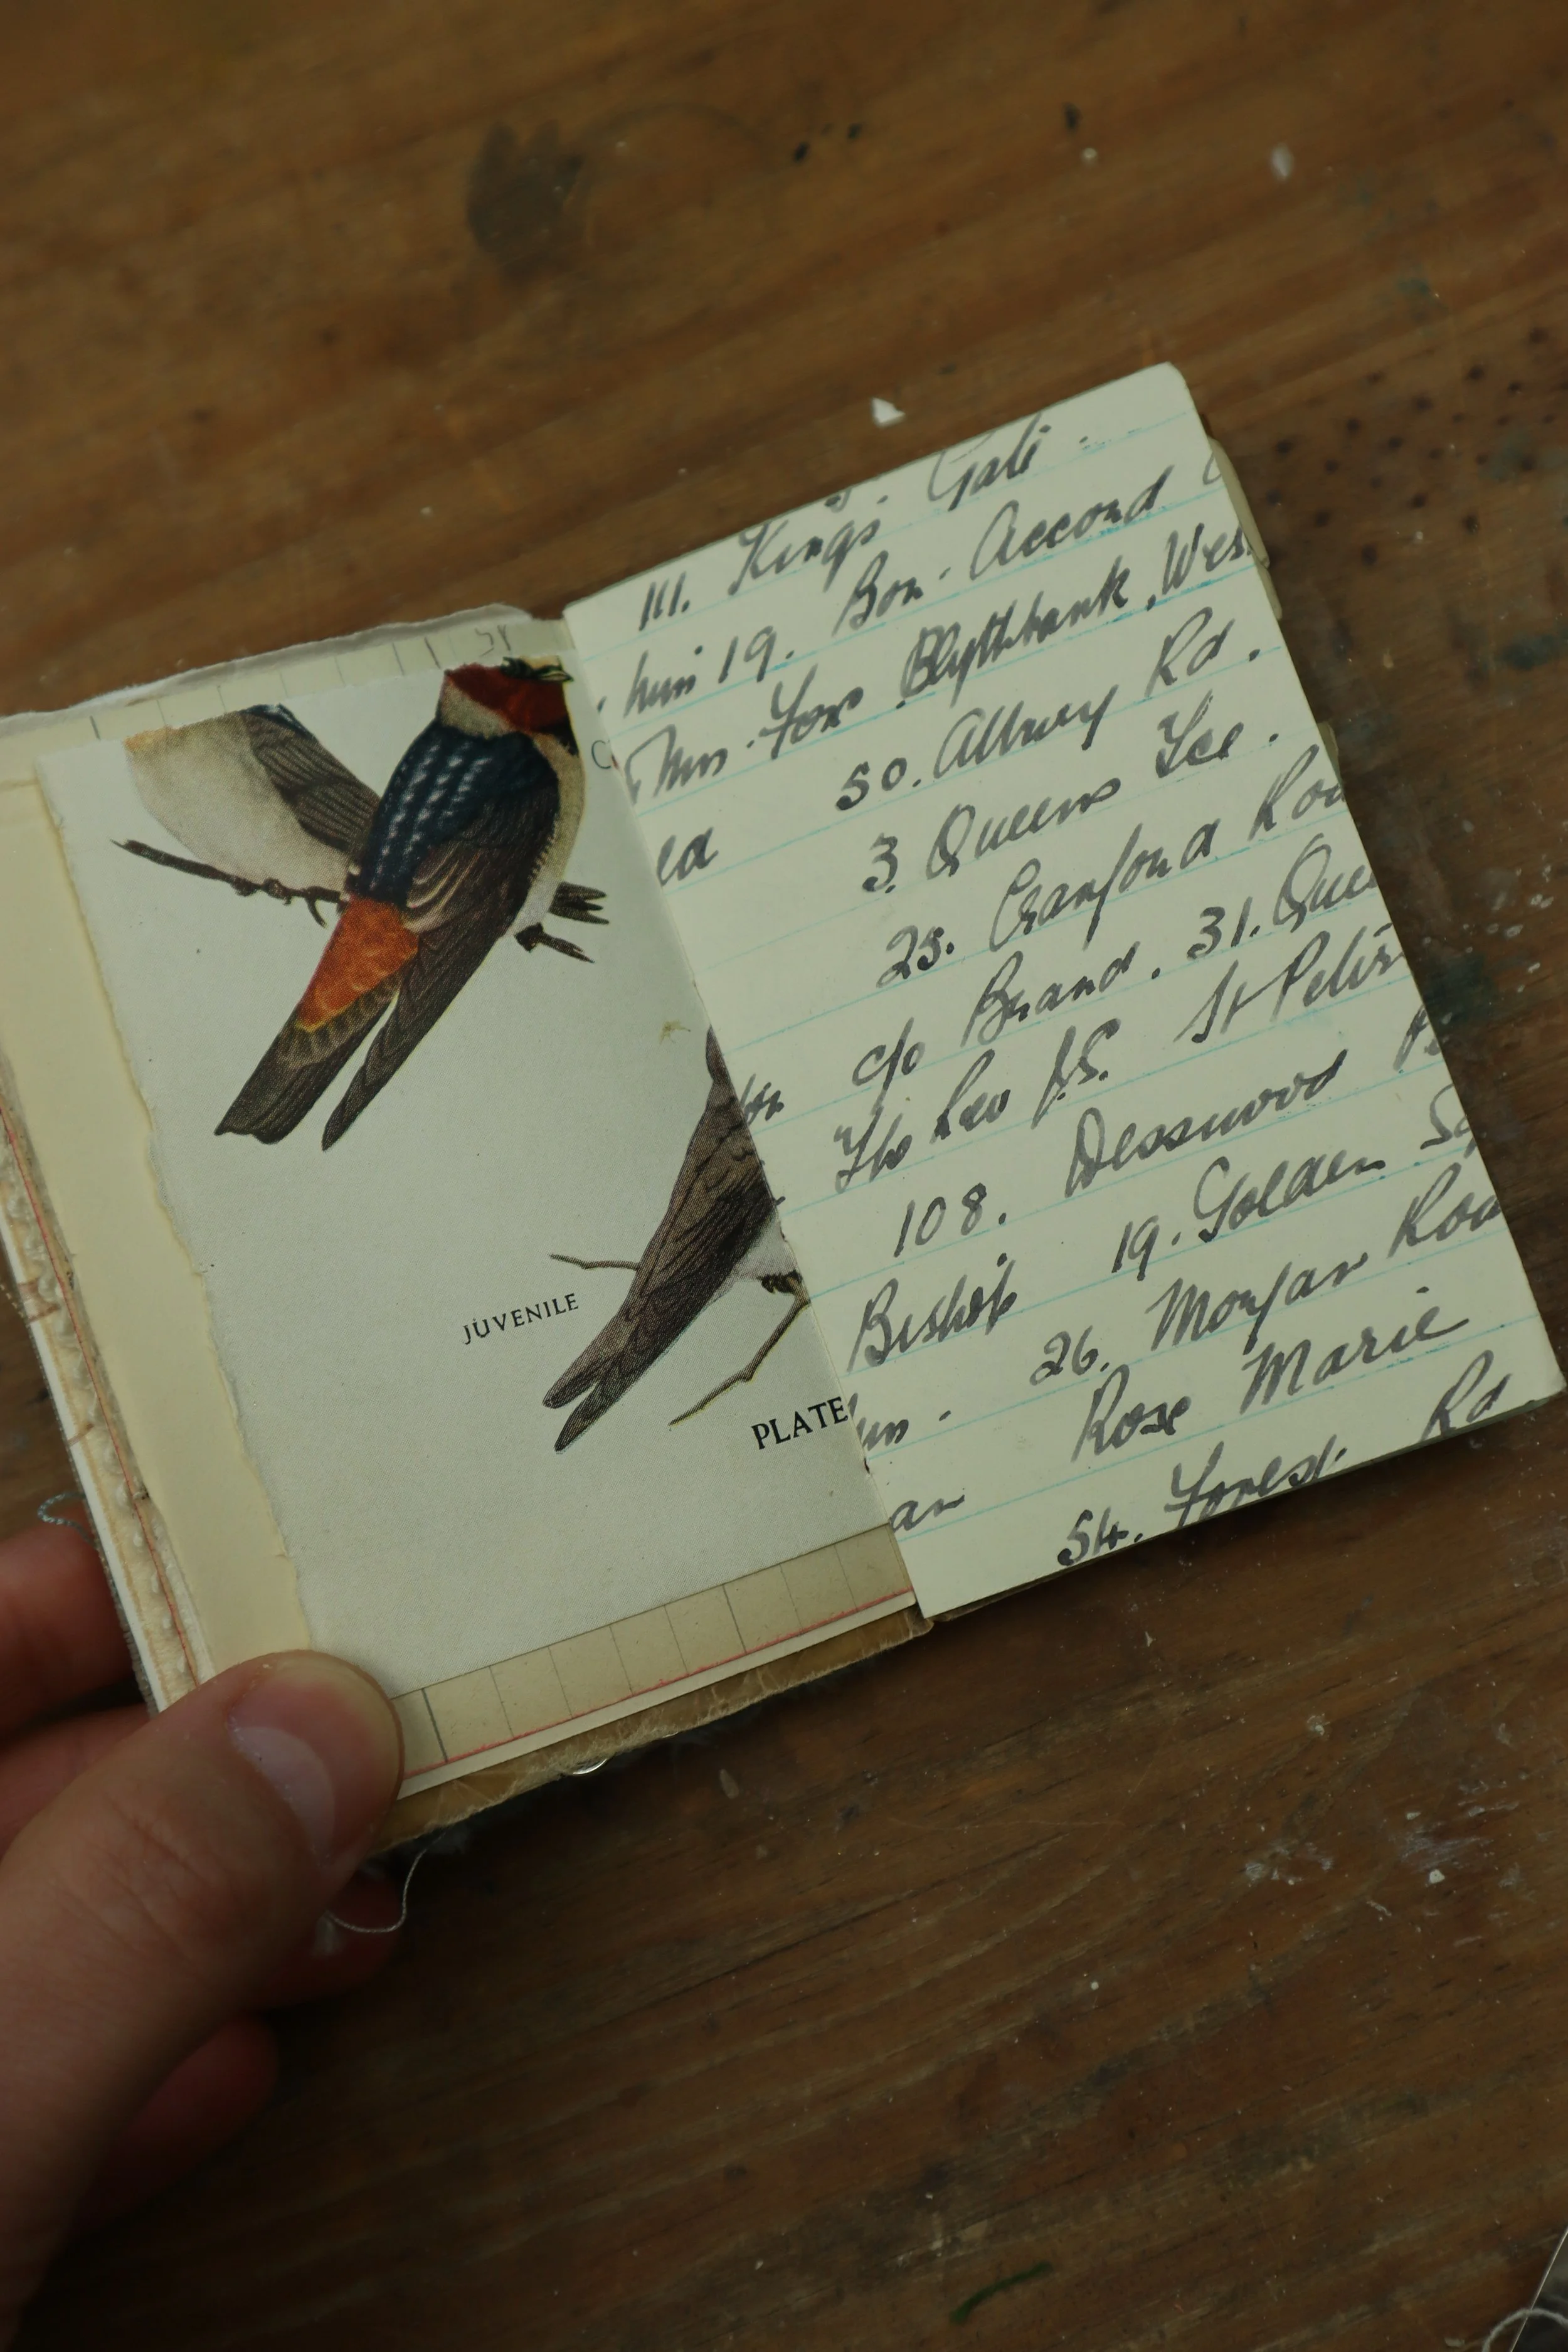 JUVENILE
PLATE
111. Kings. Gate.
19. Bon. Accord
Mrs. Fox Blythbank. Wes
50. Albury Rd.
ed 3. Queens
25. Cranford Roa
c/o Brand. 31. Quee
St Peter
108. Desswood
Bishop 19. Golden Sq
26. Morgan Roa
Rose Marie
an 54. Forest Rd